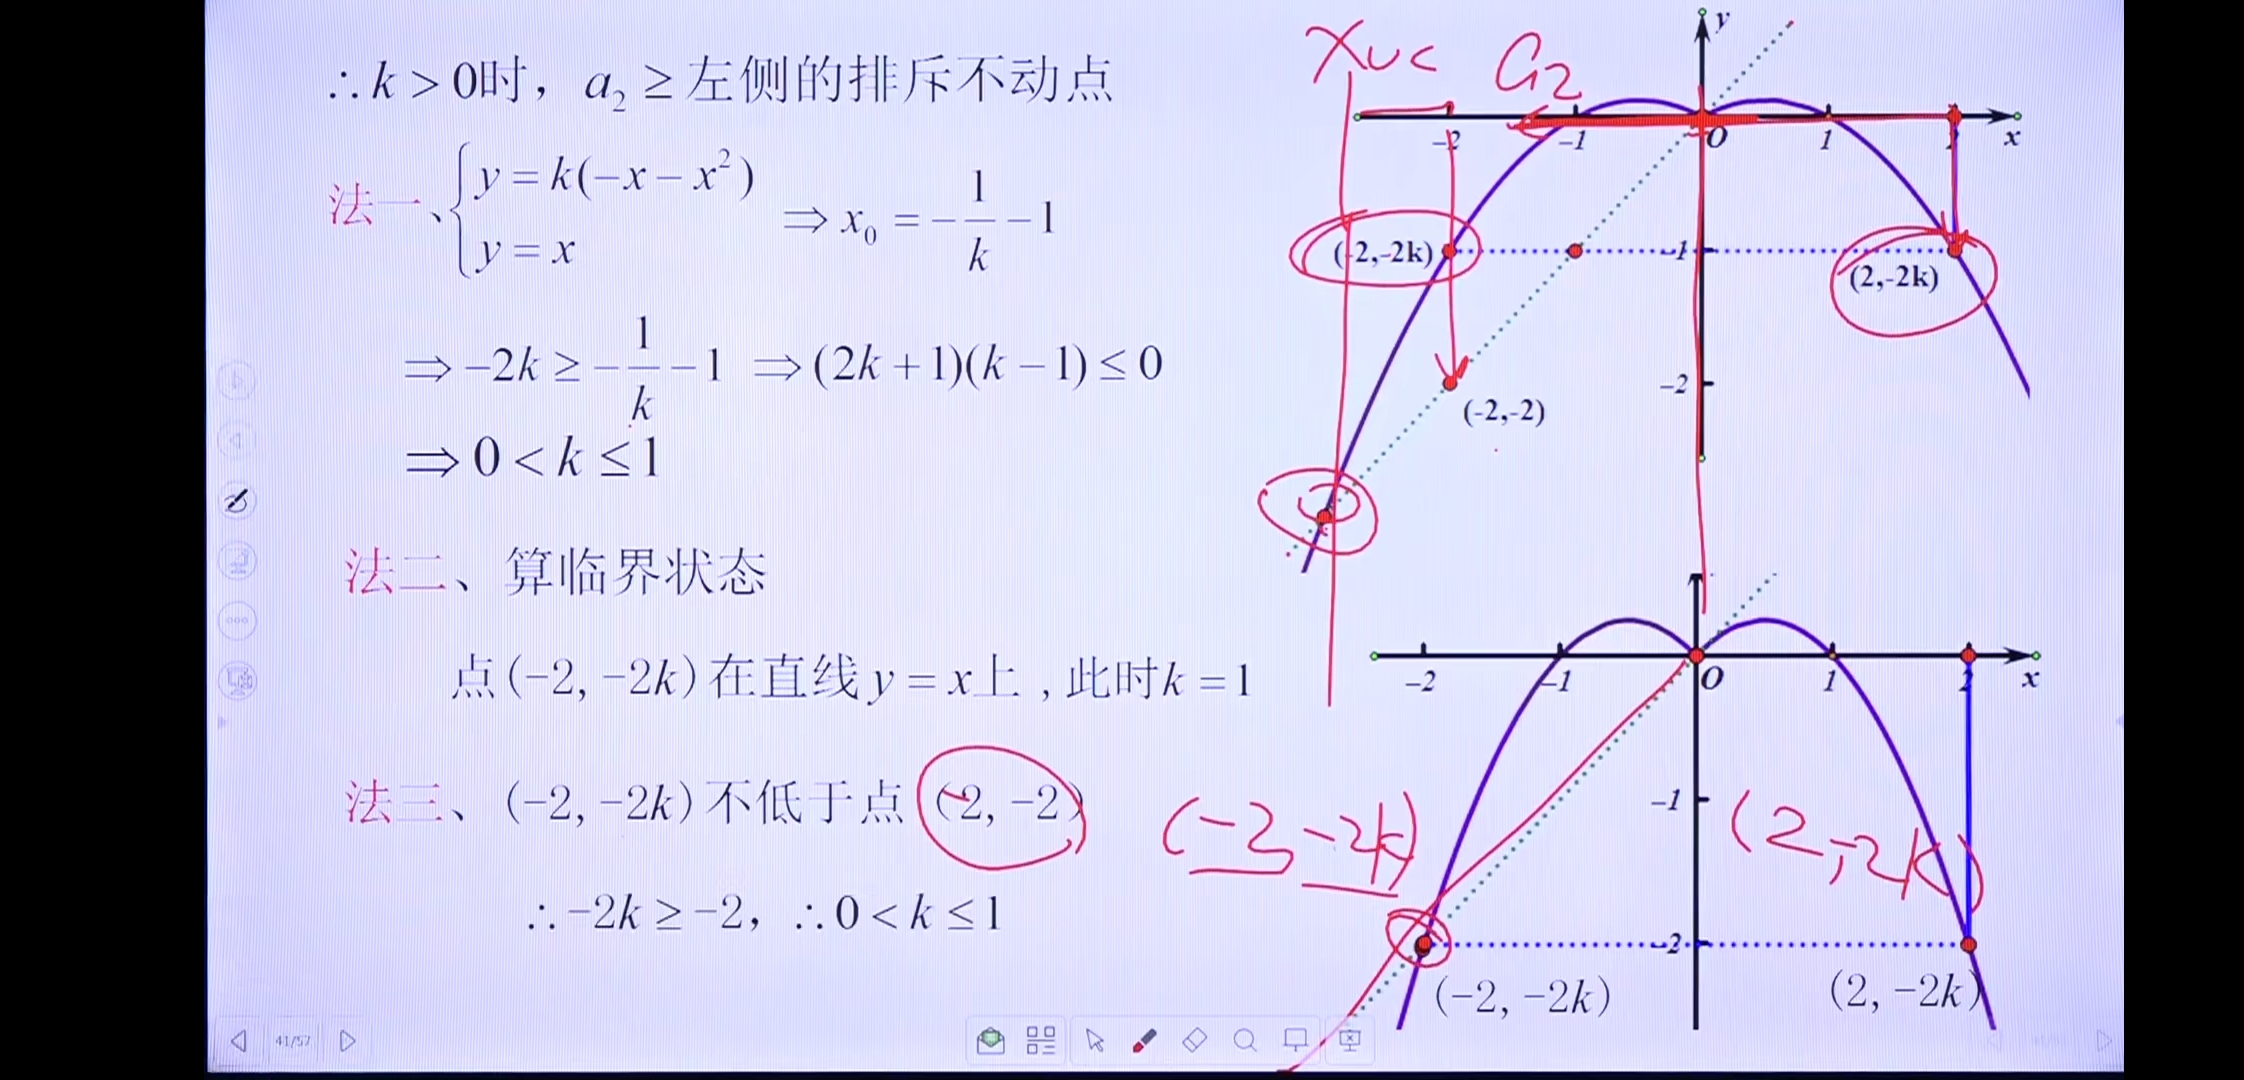 ∴k > 0时，a₂ ≥ 左侧的排斥不动点
法一、{ y = k(−x − x²)
y = x
⇒ x₀ = −1/k − 1
⇒ −2k ≥ −1/k − 1 ⇒ (2k + 1)(k − 1) ≤ 0
⇒ 0 < k ≤ 1
法二、算临界状态
点(−2, −2k)在直线y = x上 , 此时k = 1
法三、(−2, −2k)不低于点(−2, −2)
∴ −2k ≥ −2，∴ 0 < k ≤ 1
41/57
y
−2 −1 O 1 x
(-2,-2k) −1
(2,-2k)
−2
(-2,-2)
−2 −1 O 1 2 x
−1
(−2 −2k) (2,−2k)
−2
(−2, −2k) (2, −2k)